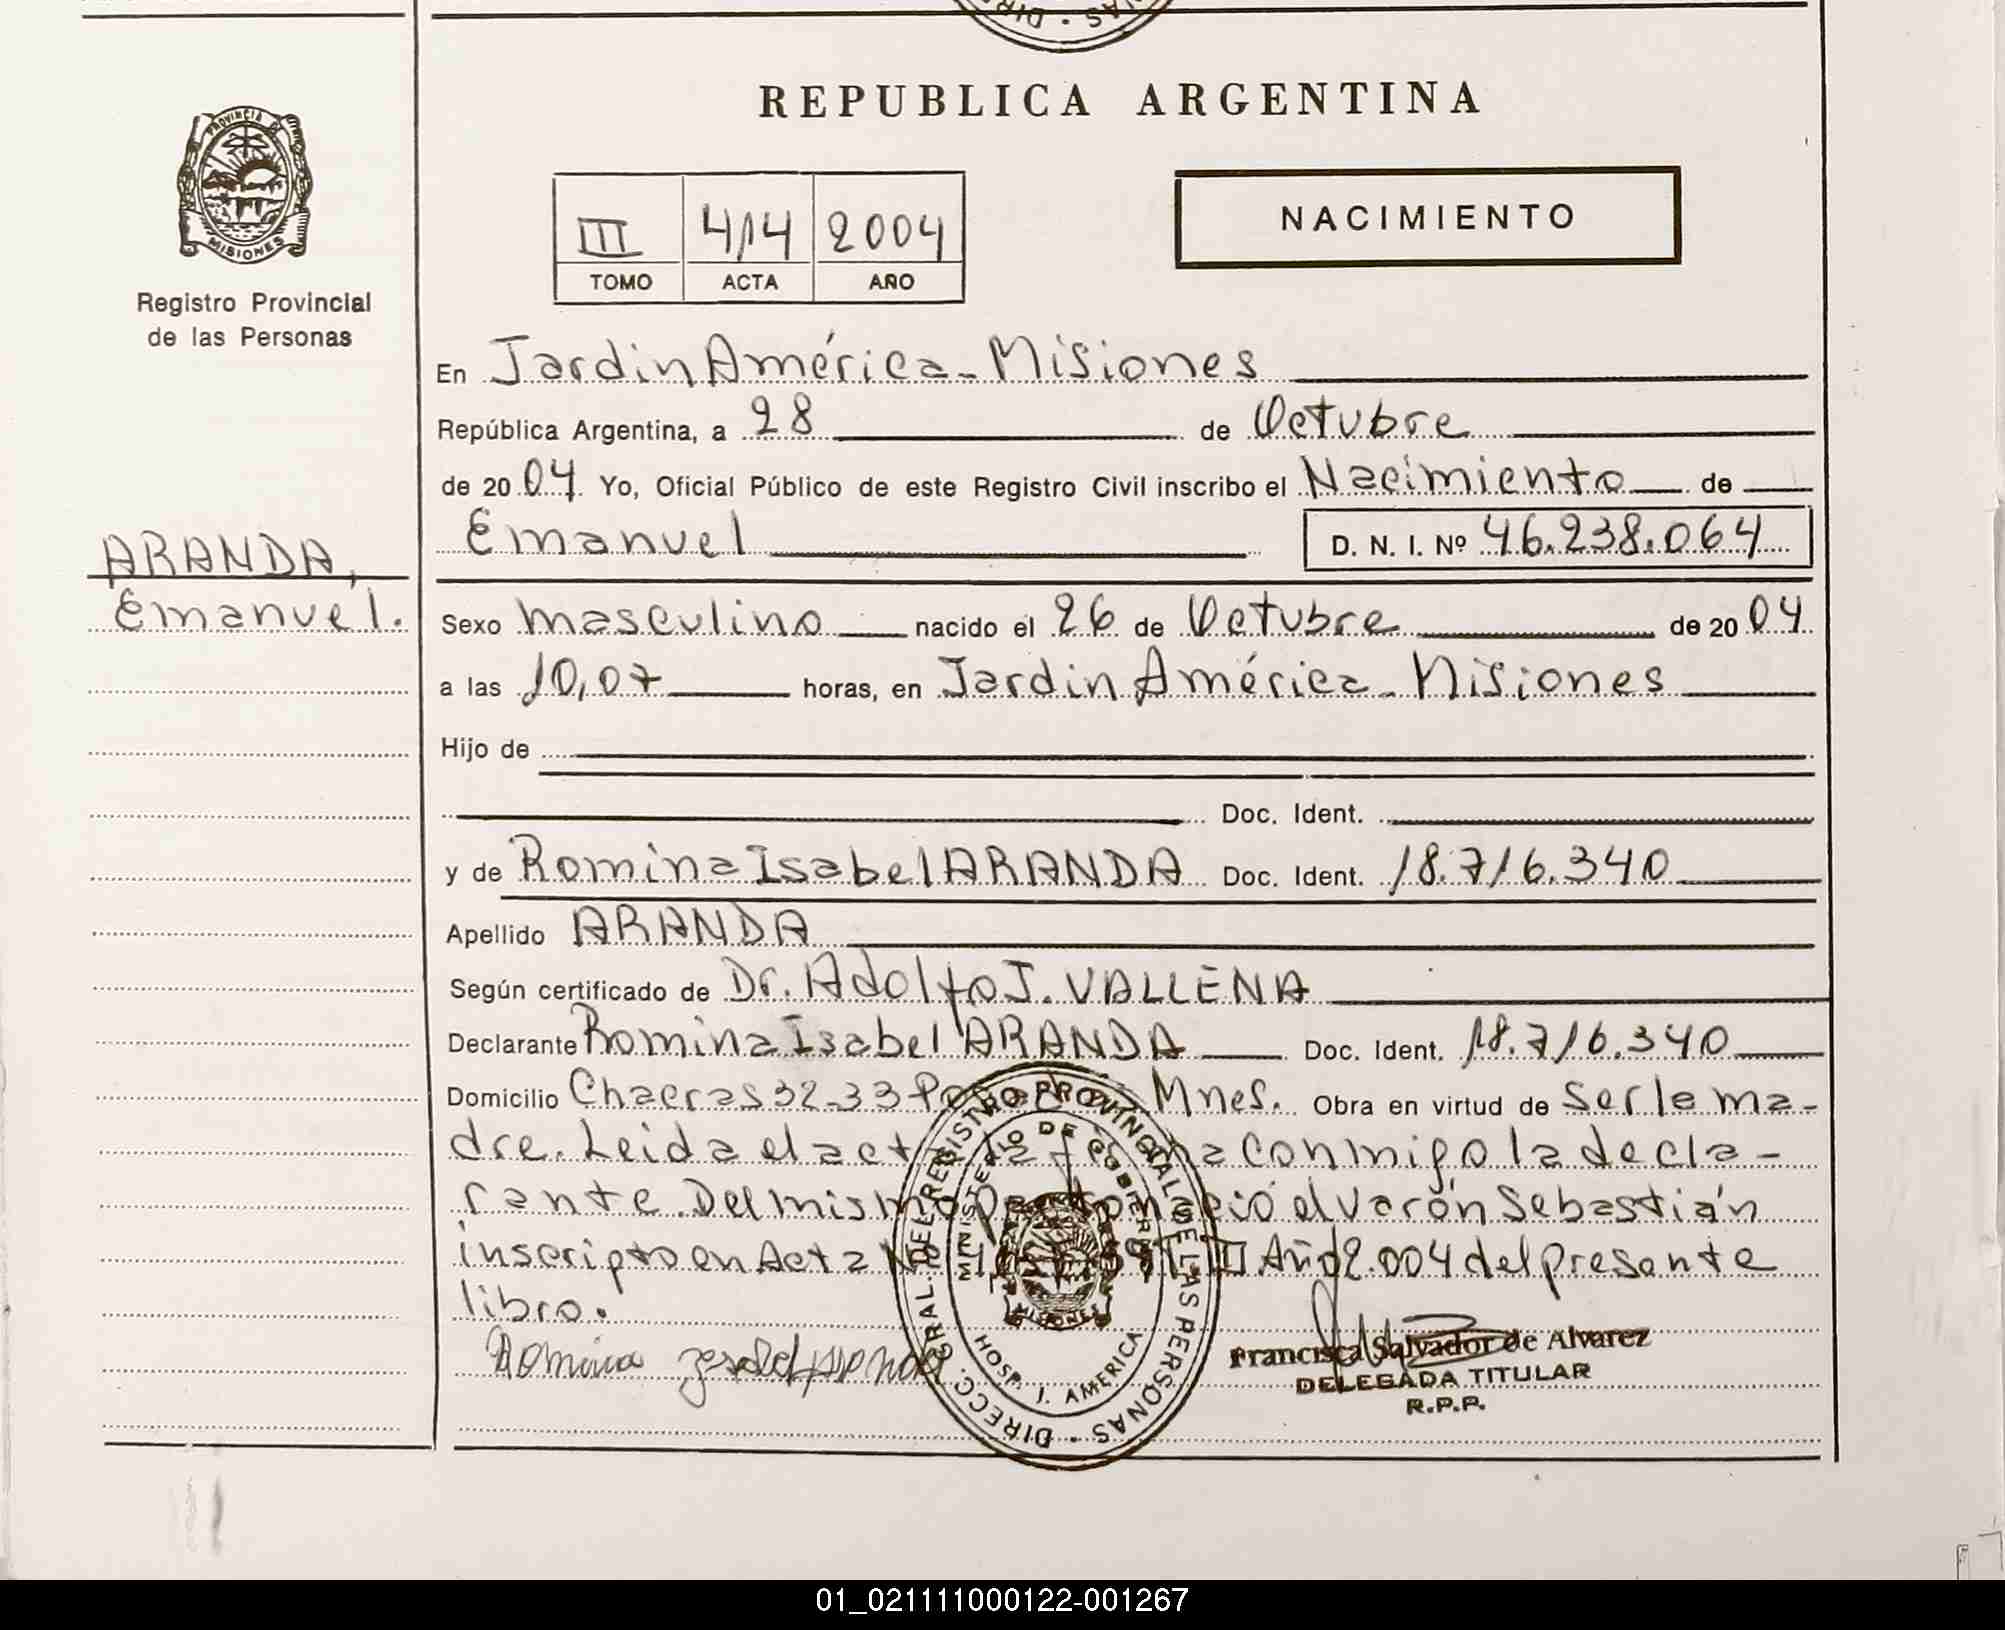 REPUBLICA ARGENTINA
PROVINCIA DE
MISIONES
Registro Provincial
de las Personas
III 414 2004
TOMO ACTA AÑO
NACIMIENTO
En Jardin América - Misiones
República Argentina, a 28 de Octubre
de 2004. Yo, Oficial Público de este Registro Civil inscribo el Nacimiento de
Emanuel D. N. I. Nº 46.238.064
ARANDA,
Emanuel.
Sexo masculino nacido el 26 de Octubre de 2004
a las 10,07 horas, en Jardin América - Misiones
Hijo de
Doc. Ident.
y de Romina Isabel ARANDA Doc. Ident. 18.716.340
Apellido ARANDA
Según certificado de Dr. Adolfo J. VALLENA
Declarante Romina Isabel ARANDA Doc. Ident. 18.716.340
Domicilio Chacras 32-33 Mnes. Obra en virtud de ser la ma-
dre. Leida el conmigo la decla-
rante. Del mismo el varón Sebastián
inscripto en Acta Año 2.004 del presente
libro.
Romina
DIRECC. GRAL. DEL REGISTRO PROVINCIAL DE LAS PERSONAS
MINISTERIO DE GOBIERNO
MISIONES
HOSP. J. AMERICA
Francisca Salvador de Alvarez
DELEGADA TITULAR
R.P.P.
01_021111000122-001267